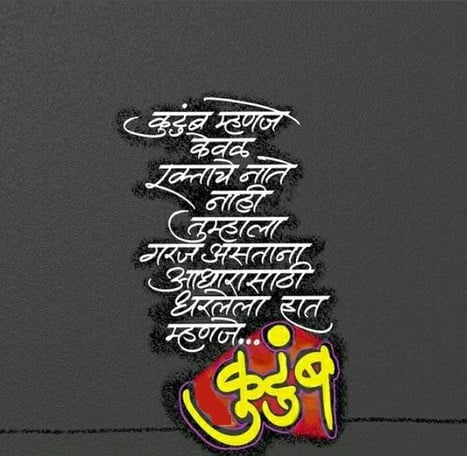 कुटुंब म्हणजे
केवळ
रक्ताचे नाते
नाही
तुम्हाला
गरज असताना
आधारासाठी
धरलेला हात
म्हणजे...
कुटुंब